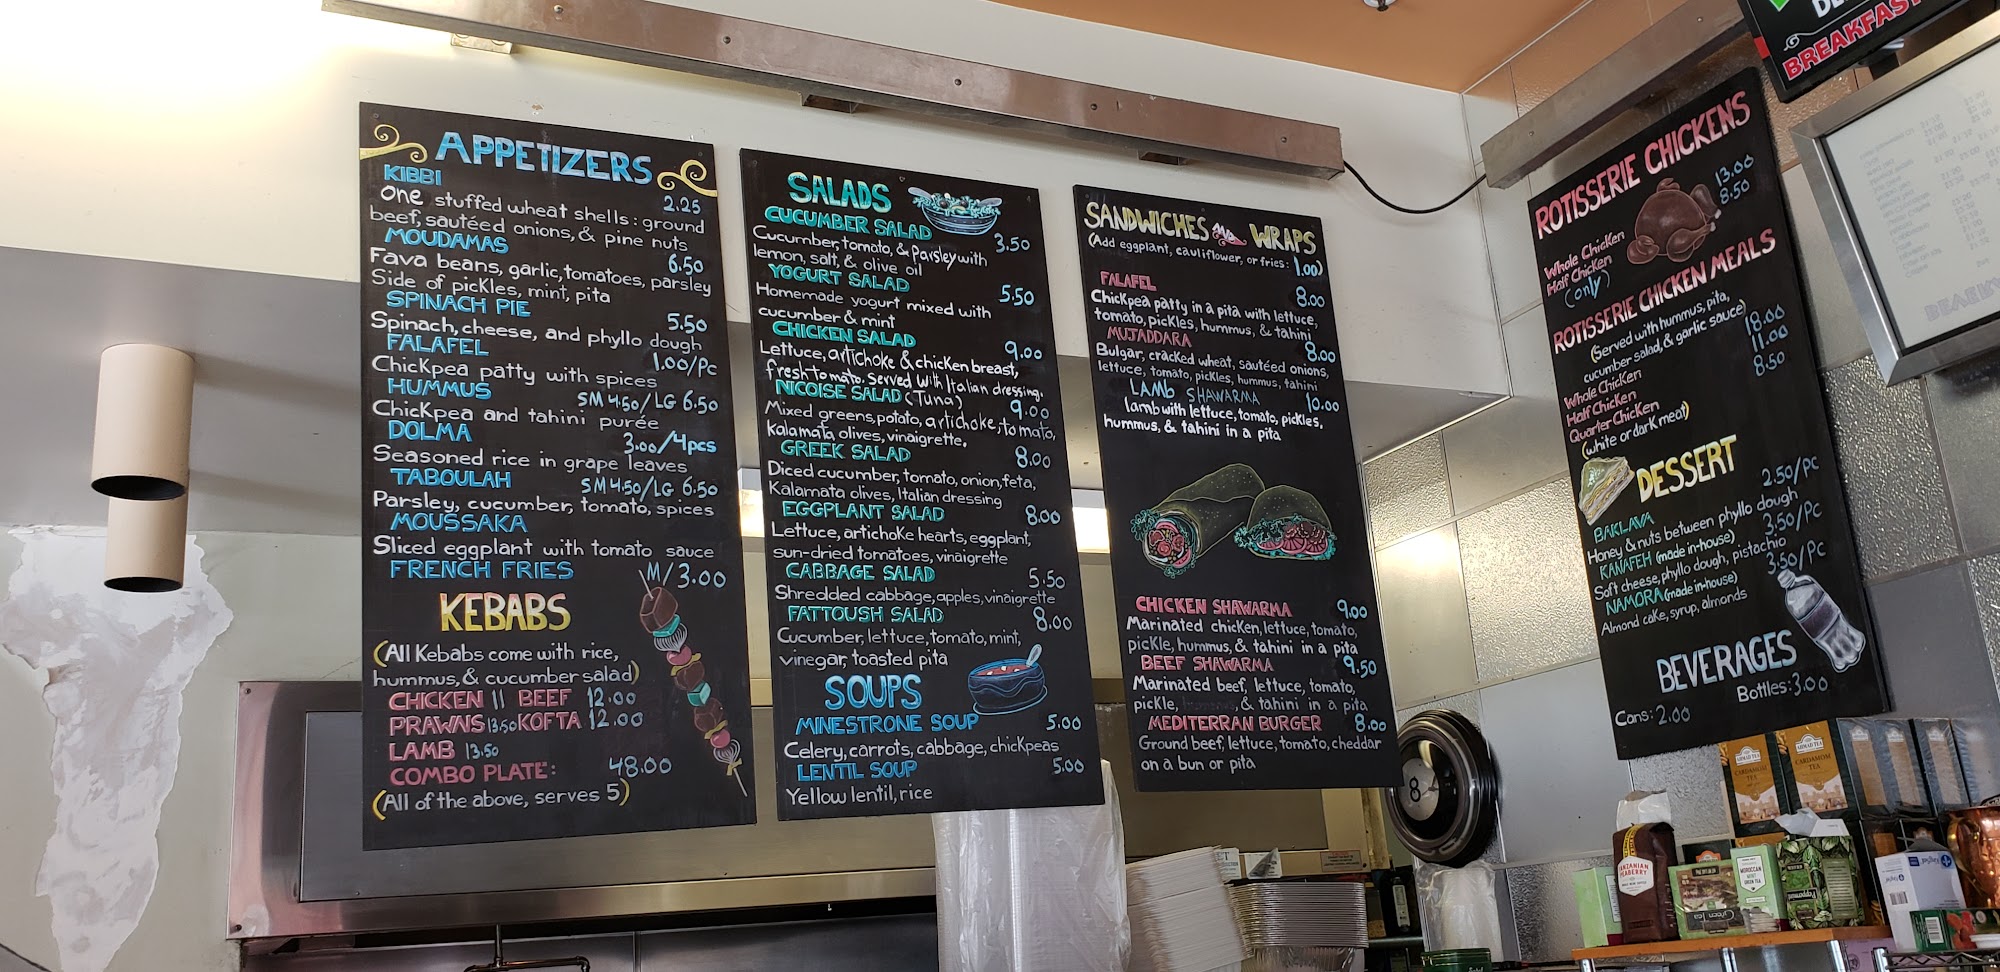 APPETIZERS
KIBBI 2.25
One stuffed wheat shells: ground
beef, sautéed onions, & pine nuts
MOUDAMAS 6.50
Fava beans, garlic, tomatoes, parsley
Side of pickles, mint, pita
SPINACH PIE 5.50
Spinach, cheese, and phyllo dough
FALAFEL 1.00/Pc
Chickpea patty with spices
HUMMUS SM 4.50/LG 6.50
Chickpea and tahini purée
DOLMA 3.00/4pcs
Seasoned rice in grape leaves
TABOULAH SM 4.50/LG 6.50
Parsley, cucumber, tomato, spices
MOUSSAKA
Sliced eggplant with tomato sauce
FRENCH FRIES M/3.00
KEBABS
(All Kebabs come with rice,
hummus, & cucumber salad)
CHICKEN || BEEF 12.00
PRAWNS 13.50 KOFTA 12.00
LAMB 13.50
COMBO PLATE: 48.00
(All of the above, serves 5)
SALADS
CUCUMBER SALAD 3.50
Cucumber, tomato, & Parsley with
lemon, salt, & olive oil
YOGURT SALAD 5.50
Homemade yogurt mixed with
cucumber & mint
CHICKEN SALAD 9.00
Lettuce, artichoke & chicken breast,
fresh tomato. served with Italian dressing.
NICOISE SALAD (Tuna) 9.00
Mixed greens, potato, artichoke, tomato,
kalamata olives, vinaigrette.
GREEK SALAD 8.00
Diced cucumber, tomato, onion, feta,
Kalamata olives, Italian dressing
EGGPLANT SALAD 8.00
Lettuce, artichoke hearts, eggplant,
sun-dried tomatoes, vinaigrette
CABBAGE SALAD 5.50
Shredded cabbage, apples, vinaigrette
FATTOUSH SALAD 8.00
Cucumber, lettuce, tomato, mint,
vinegar, toasted pita
SOUPS
MINESTRONE SOUP 5.00
Celery, carrots, cabbage, chickpeas
LENTIL SOUP 5.00
Yellow lentil, rice
SANDWICHES WRAPS
(Add eggplant, cauliflower, or fries: 1.00)
FALAFEL 8.00
Chickpea patty in a pita with lettuce,
tomato, pickles, hummus, & tahini
MUJADDARA 8.00
Bulgar, cracked wheat, sautéed onions,
lettuce, tomato, pickles, hummus, tahini
LAMB SHAWARMA 10.00
lamb with lettuce, tomato, pickles,
hummus, & tahini in a pita
CHICKEN SHAWARMA 9.00
Marinated chicken, lettuce, tomato,
pickle, hummus, & tahini in a pita
BEEF SHAWARMA 9.50
Marinated beef, lettuce, tomato,
pickle, hummus, & tahini in a pita
MEDITERRAN BURGER 8.00
Ground beef, lettuce, tomato, cheddar
on a bun or pita
ROTISSERIE CHICKENS
Whole Chicken 13.00
Half Chicken 8.50
(only)
ROTISSERIE CHICKEN MEALS
(Served with hummus, pita,
cucumber salad, & garlic sauce)
Whole Chicken 18.00
Half Chicken 11.00
Quarter Chicken 8.50
(white or dark meat)
DESSERT
BAKLAVA 2.50/pc
Honey & nuts between phyllo dough
KANAFEH (made in-house) 3.50/Pc
Soft cheese, phyllo dough, pistachio
NAMORA (made in-house) 3.50/Pc
Almond cake, syrup, almonds
BEVERAGES
Bottles: 3.00
Cans: 2.00
BREAKFAST
8
AHMAD TEA
CARDAMOM
TEA
AHMAD TEA
CARDAMOM
TEA
MOROCCAN
MINT
GREEN TEA
Green Tea
Peppermint